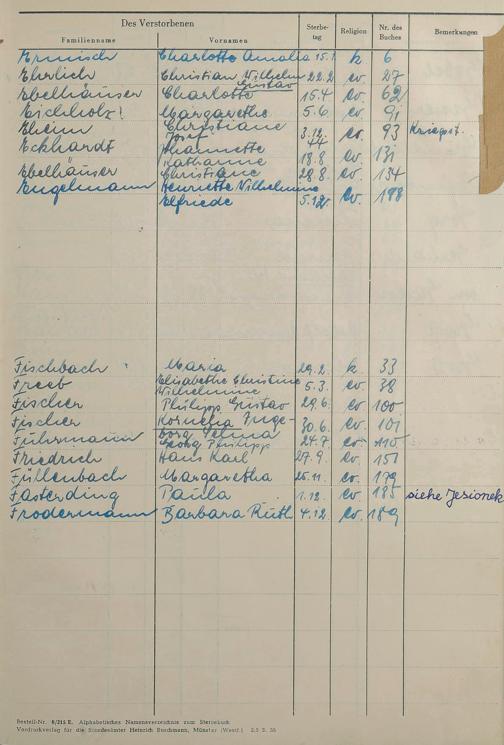 Des Verstorbenen
Familienname Vornamen Sterbetag Religion Nr. des Buches Bemerkungen
Ermisch Charlotte Amalia 15.1. k 6
Ehrlich Christian Wilhelm Gustav 22.2. ev. 27
Ebelhäuser Charlotte 15.4 ev. 62
Eichholz Margarethe 5.6. ev. 91
Eheim Christiane Josef 3.12.44 ev. 93 Kriegst.
Eckhardt Jeannette Katharine 18.8 ev. 131
Ebelhäuser Christiane 28.8. ev. 134
Engelmann Henriette Wilhelmine Elfriede 5.12. ev. 198
Fischbach Maria 29.2. k 33
Freeb Elisabethe Christine Wilhelmine 5.3. ev 38
Fischer Philipp Gustav 29.6. ev. 100
Fischer Kornelia Inge- 30.6. ev. 101
Fuhrmann Georg Philipp 24.7 ev. 110
Friedrich Hans Karl 27.9. ev. 151
Füllenbach Margaretha 25.11. ev. 179
Fasterding Paula 1.12. ev. 185 siehe Jesionek
Frodermann Barbara Ruth 4.12. ev. 189
Bestell-Nr. 8/215 E. Alphabetisches Namensverzeichnis zum Sterbebuch
Vordruckverlag für die Standesämter Heinrich Buschmann, Münster (Westf.)